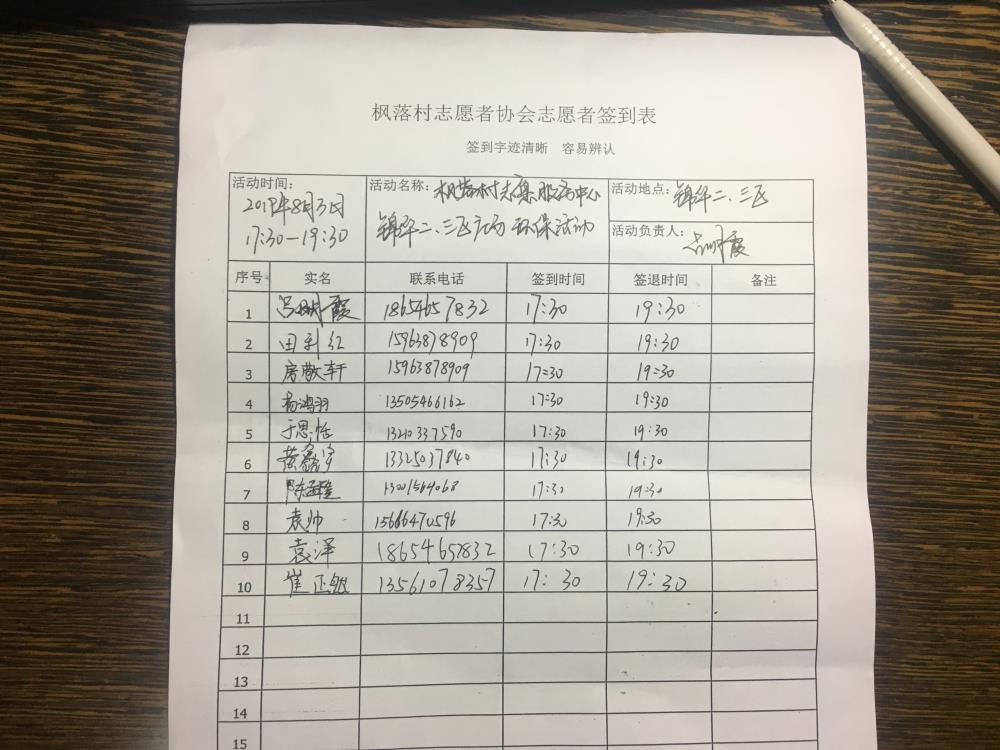 枫落村志愿者协会志愿者签到表
签到字迹清晰 容易辨认
活动时间: 2019年8月3日 17:30-19:30
活动名称: 枫落村志愿服务中心 锦华二、三区广场环保活动
活动地点: 锦华二、三区
活动负责人: 吕明霞
序号 实名 联系电话 签到时间 签退时间 备注
1 吕明霞 18654657832 17:30 19:30
2 田利红 15963878909 17:30 19:30
3 房敬轩 15963878909 17:30 19:30
4 杨鸿羽 13505466162 17:30 19:30
5 于思恬 13210337590 17:30 19:30
6 黄鑫宇 13325037840 17:30 19:30
7 17:30 19:30
8 袁帅 15666470596 17:30 19:30
9 袁泽 18654657832 17:30 19:30
10 崔正 13561078357 17:30 19:30
11
12
13
14
15